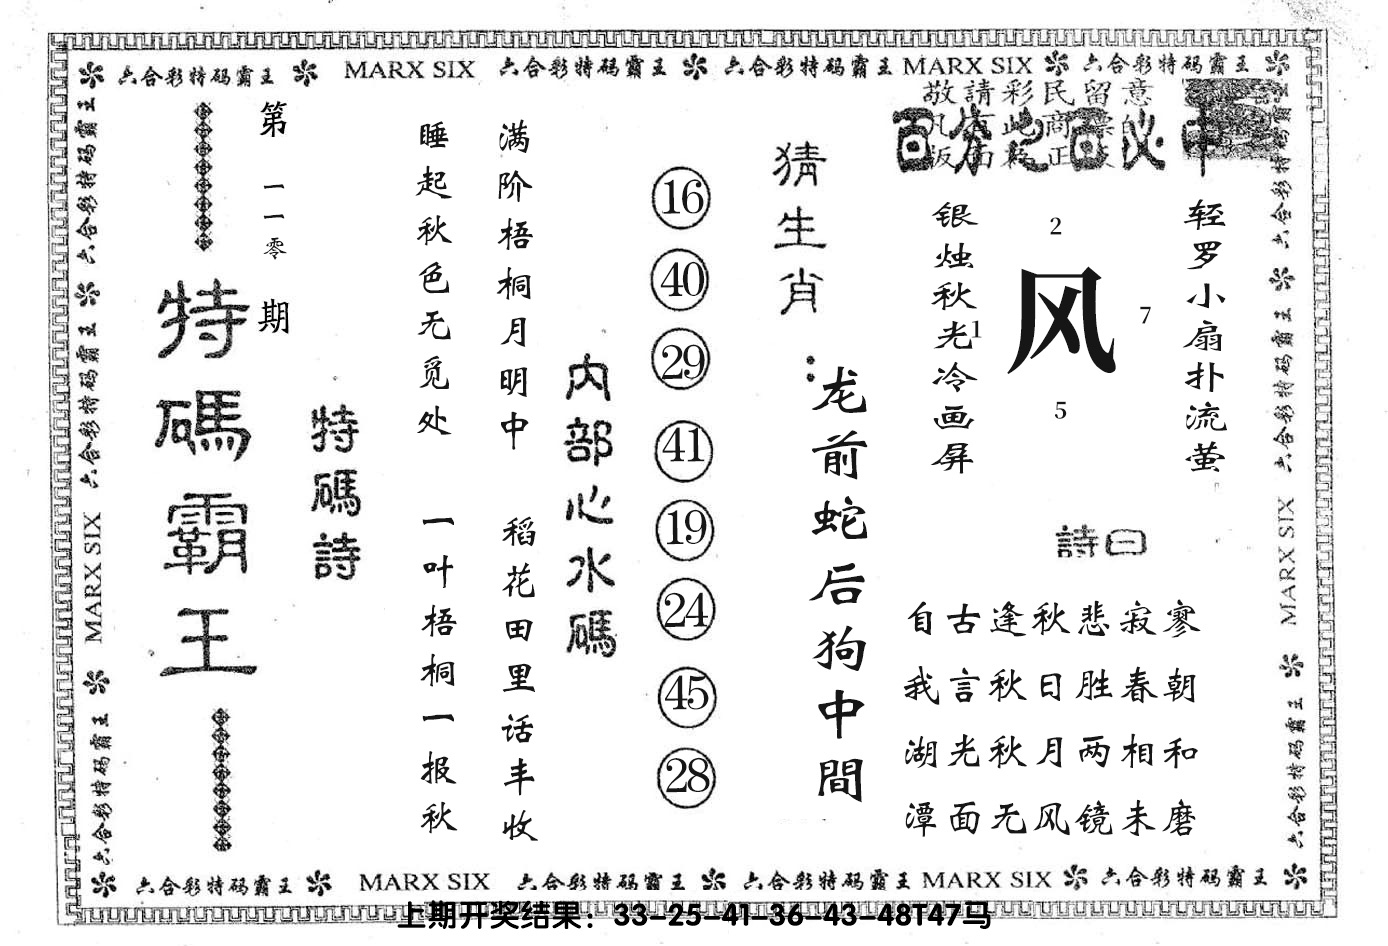 六合彩特码霸王 MARX SIX 六合彩特码霸王 六合彩特码霸王 MARX SIX 六合彩特码霸王
六合彩特码霸王 六合彩特码霸王 MARX SIX 六合彩特码霸王
第一一零期
特碼霸王
特碼詩
睡起秋色无觅处
满阶梧桐月明中
一叶梧桐一报秋
稻花田里话丰收
内部心水碼
16
40
29
41
19
24
45
28
猜生肖：
龙前蛇后狗中間
敬請彩民留意
百分之百必中
银烛秋光冷画屏
2
1
风
7
5
轻罗小扇扑流萤
詩曰
自古逢秋悲寂寥
我言秋日胜春朝
湖光秋月两相和
潭面无风镜未磨
六合彩特码霸王 六合彩特码霸王 MARX SIX 六合彩特码霸王
六合彩特码霸王 MARX SIX 六合彩特码霸王 六合彩特码霸王 MARX SIX 六合彩特码霸王
上期开奖结果：33-25-41-36-43-48T47马